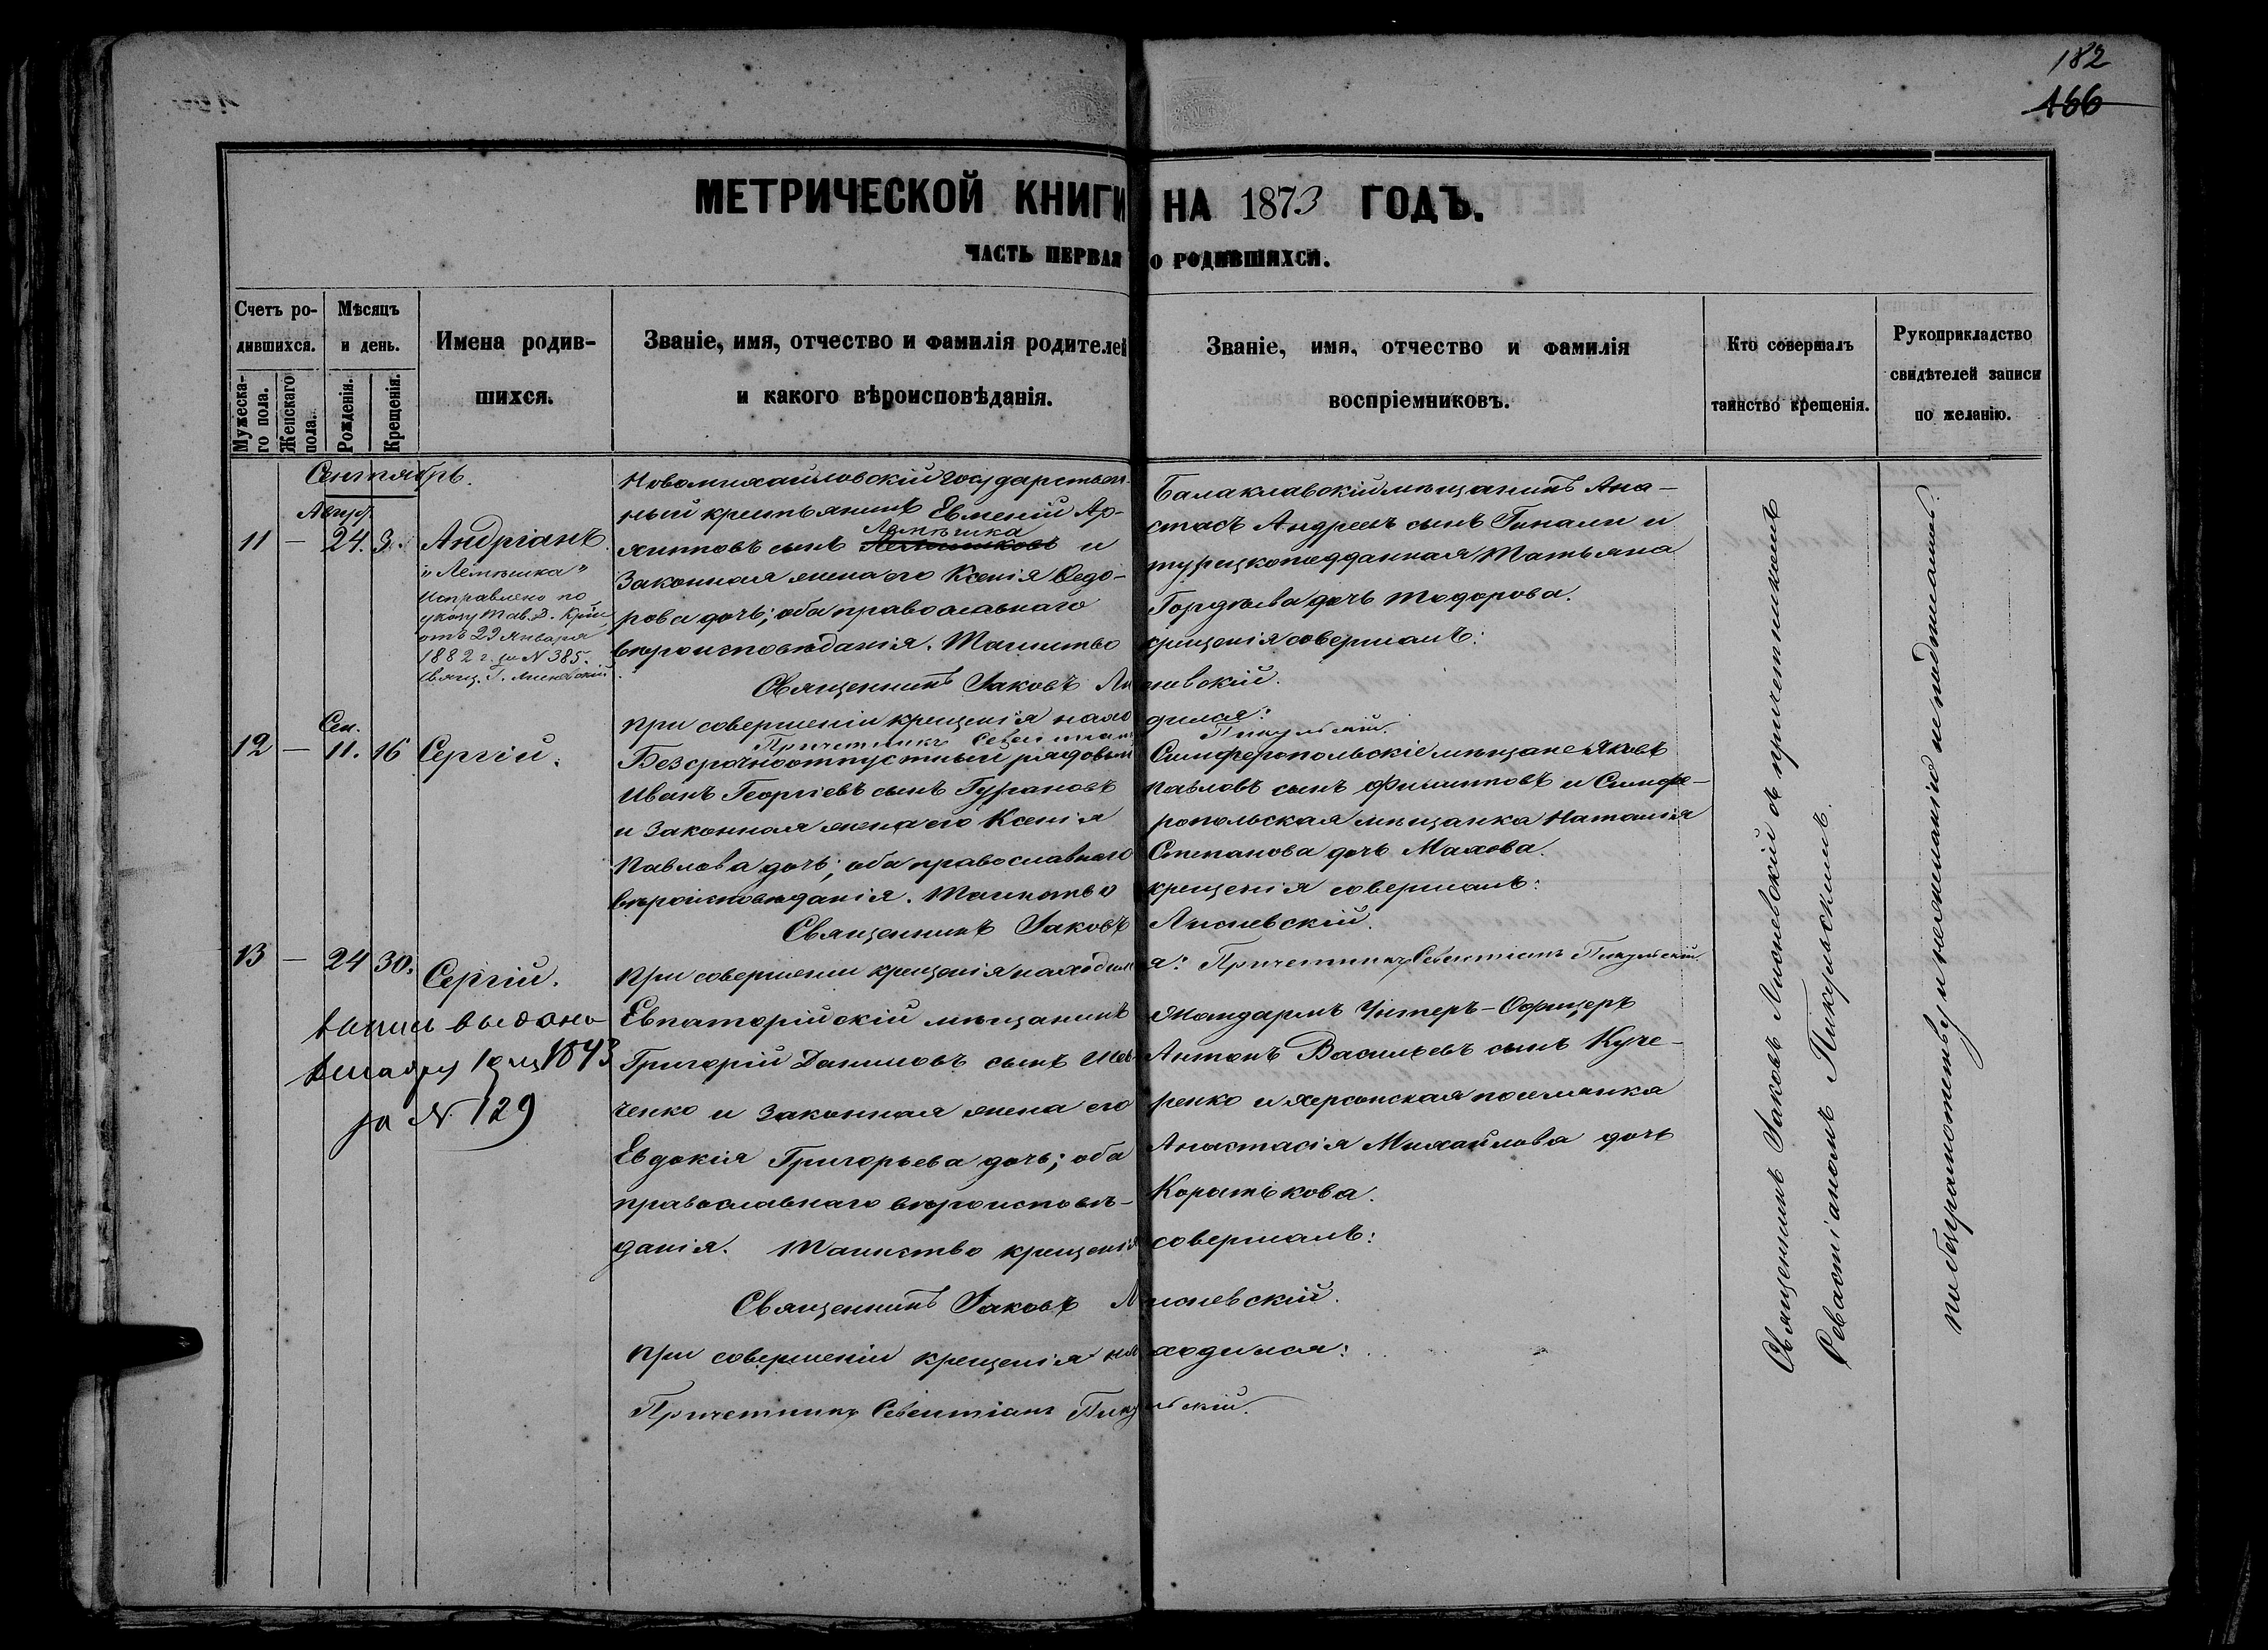 182
166
МЕТРИЧЕСКОЙ КНИГИ НА 1873 ГОДЪ.
ЧАСТЬ ПЕРВАЯ О РОДИВШИХСЯ.
Счетъ ро-
дившихся.
Мужеска-
го пола.
Женскаго
пола.
Мѣсяцъ
и день.
Рожденія.
Крещенія.
Имена родив-
шихся.
Званіе, имя, отчество и фамилія родителей
и какого вѣроисповѣданія.
Званіе, имя, отчество и фамилія
воспріемниковъ.
Кто совершалъ
таинство крещенія.
Рукоприкладство
свидѣтелей записи
по желанію.
Сентябрь.
Авгус.
11 — 24. 3. Андріанъ.
"Лемѣшка"
Исправлено по
указу Тав. Д.
отъ 29 Января
1882 г. за N 385.
Свящ. Г.
Новомихайловскій государствен-
ный крестьянинъ Евменій Ар-
хиповъ сынъ Лемѣшка и
законная жена его Ксенія Ѳедо-
рова дочь; оба православнаго
вѣроисповѣданія. Таинство
Балаклавскій мѣщанинъ Ана-
стасъ Андреевъ сынъ Гинали и
турецкоподданная Татьяна
Гордѣева дочь Тодорова.
крещенія совершалъ:
Священникъ Іаковъ Лисневскій.
при совершеніи крещенія находился:
Причетникъ Севастіанъ Пикульскій.
Сен.
12 — 11. 16 Сергій.
Безсрочноотпустный рядовый
Иванъ Георгіевъ сынъ Гурановъ
и законная жена его Ксенія
Павлова дочь; оба православнаго
вѣроисповѣданія. Таинство
Симферопольскіе мѣщане Яковъ
Павловъ сынъ Филипповъ и Симфе-
ропольская мѣщанка Наталія
Степанова дочь Махова.
крещенія совершалъ:
Священникъ Іаковъ Лисневскій.
при совершеніи крещенія находился: Причетникъ Севастіанъ Пикульскій.
13 — 24 30. Сергій.
выдана
за N 129
Евпаторійскій мѣщанинъ
Григорій Даниловъ сынъ Шев-
ченко и законная жена его
Евдокія Григорьева дочь; оба
православнаго вѣроисповѣ-
данія. Таинство крещенія
Жандармъ Унтеръ-Офицеръ
Антонъ Васильевъ сынъ Куче-
ренко и херсонская поселянка
Анастасія Михайлова дочь
Коротькова.
совершалъ:
Священникъ Іаковъ Лисневскій.
при совершеніи крещенія находился:
Причетникъ Севастіанъ Пикульскій.
Священникъ Іаковъ Лисневскій съ причетникомъ
Севастіаномъ Пикульскимъ.
по безграмотству и нежеланію неподписались.